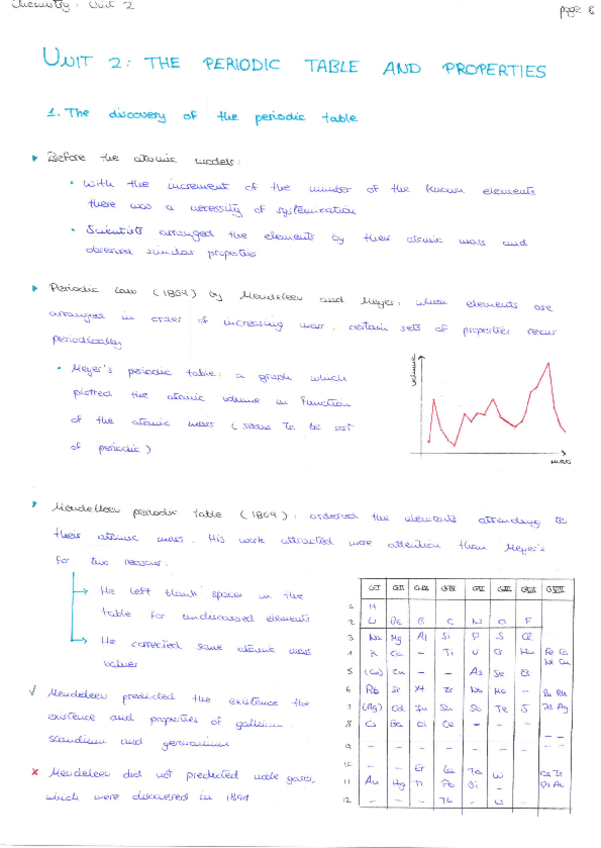 Chemistry: Unit 2
page 6
UNIT 2: THE PERIODIC TABLE AND PROPERTIES
1. The discovery of the periodic table
Before the atomic models:
• With the increment of the number of the known elements
there was a necessity of systemization
• Scientists arranged the elements by their atomic mass and
observed similar properties
Periodic law (1869) by Mendeleev and Meyer: when elements are
arranged in order of increasing mass, certain sets of properties recur
periodically
• Meyer's periodic table: a graph which
plotted the atomic volume in function
of the atomic mass (seems to be sort
of periodic)
volume
mass
Mendeleev periodic table (1869): ordered the elements attending to
their atomic mass. His work attracted more attention than Meyer's
for two reasons:
He left blank spaces in the
table for undiscussed elements
He corrected some atomic mass
values
✓ Mendeleev predicted the existence the
existence and properties of gallium
scandium and germanium
✗ Mendeleev did not predicted noble gases,
which were discovered in 1894
GI GII GIII GIV GV GVI GVII GVIII
1 H
2 Li Be B C N O F
3 Na Mg Al Si P S Cl
4 K Ca - Ti V Cr Mn Fe Co
Ni Cu
5 (Cu) Zn - - As Se Br
6 Rb Sr Yt Zr Nb Mo - Ru Rh
7 (Ag) Cd In Sn Sb Te J Pd Ag
8 Cs Ba Di Ce - - -
- -
9 - - - - - - -
10 - - Er La Ta W Os Ir
11 Au Hg Tl Pb Bi - Pt Au
12 - - - Th - U